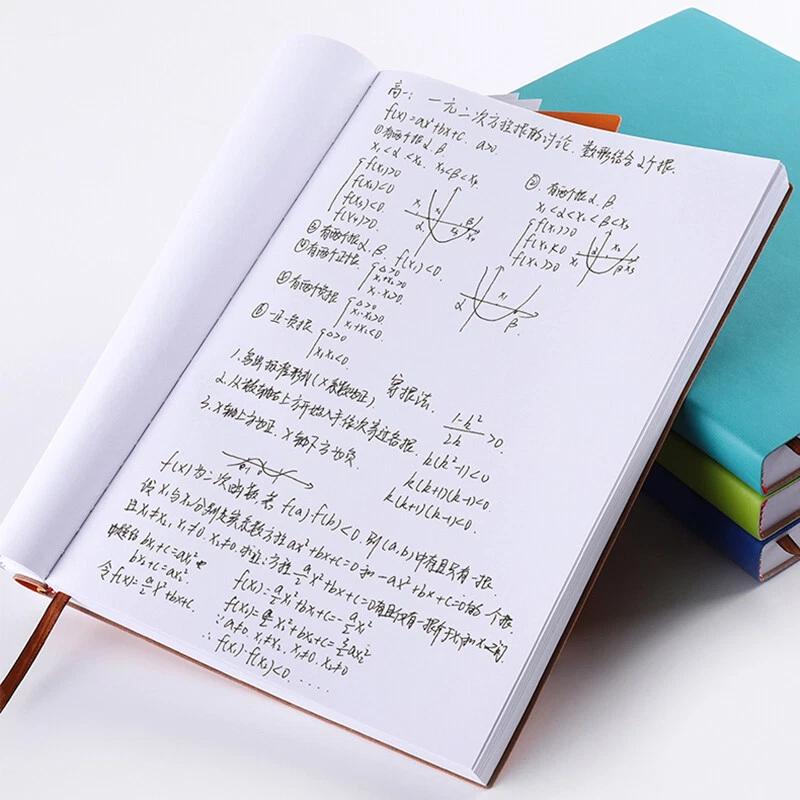 高一: 一元二次方程根的讨论. 数形结合 2个根.
f(x)=ax²+bx+c. a>0
① 有两个根 α. β
x₁<α<x₂. x₃<β<x₄
f(x₁)>0
f(x₂)<0
f(x₃)<0
f(x₄)>0
x₁
α
β
② 有两个根 α. β
x₁<α<x₂<β<x₃
f(x₁)>0
f(x₂)<0
f(x₃)>0
③ 有两个根 α. β. f(x₁)<0
α
x₁
β
④ 有两个正根
△>0
x₁+x₂>0
x₁·x₂>0
有两个负根
△>0
x₁·x₂>0
x₁+x₂<0
⑥ 一正一负根
△>0
x₁x₂<0
穿根法
1. 标准形式(x系数为正)
2. 从数轴右上方开始 依次穿过各根.
3. x轴上方为正. x轴下方为负
(1-k²)/2k>0
k(k²-1)<0
k(k+1)(k-1)<0
k(k+1)(k-1)<0.
f(x)为二次函数, 若 f(a)·f(b)<0. 则(a,b)中有且只有一根.
设 x₁与x₂分别是实系数方程 ax²+bx+c=0 和 -ax²+bx+c=0 的一个根.
且 x₁≠x₂, x₁≠0. x₂≠0. 求证: 方程 a/2 x²+bx+c=0 有且仅有一根介于x₁和x₂之间.
bx₁+c=-ax₁²
bx₂+c=ax₂².
令f(x)=a/2 x²+bx+c.
f(x₁)=a/2 x₁²+bx₁+c=-a/2 x₁²
f(x₂)=a/2 x₂²+bx₂+c=3/2 ax₂²
∵ a≠0. x₁≠x₂. x₁≠0. x₂≠0
∴ f(x₁)·f(x₂)<0. ……